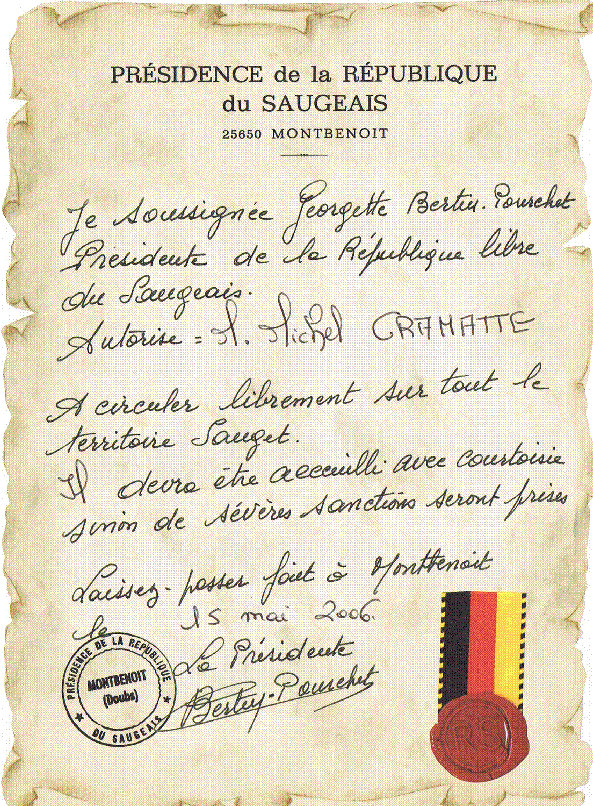 PRÉSIDENCE de la RÉPUBLIQUE
du SAUGEAIS
25650 MONTBENOIT
Je soussignée Georgette Bertin-Pourchet
Présidente de la République libre
du Saugeais.
Autorise = M. Michel CRAMATTE
A circuler librement sur tout le
territoire Sauget.
Il devra être accueilli avec courtoisie
sinon de sévères sanctions seront prises
Laissez-passer fait à Montbenoit
le 15 mai 2006.
La Présidente
Bertin-Pourchet
PRÉSIDENCE DE LA RÉPUBLIQUE
MONTBENOIT
(Doubs)
DU SAUGEAIS
RS